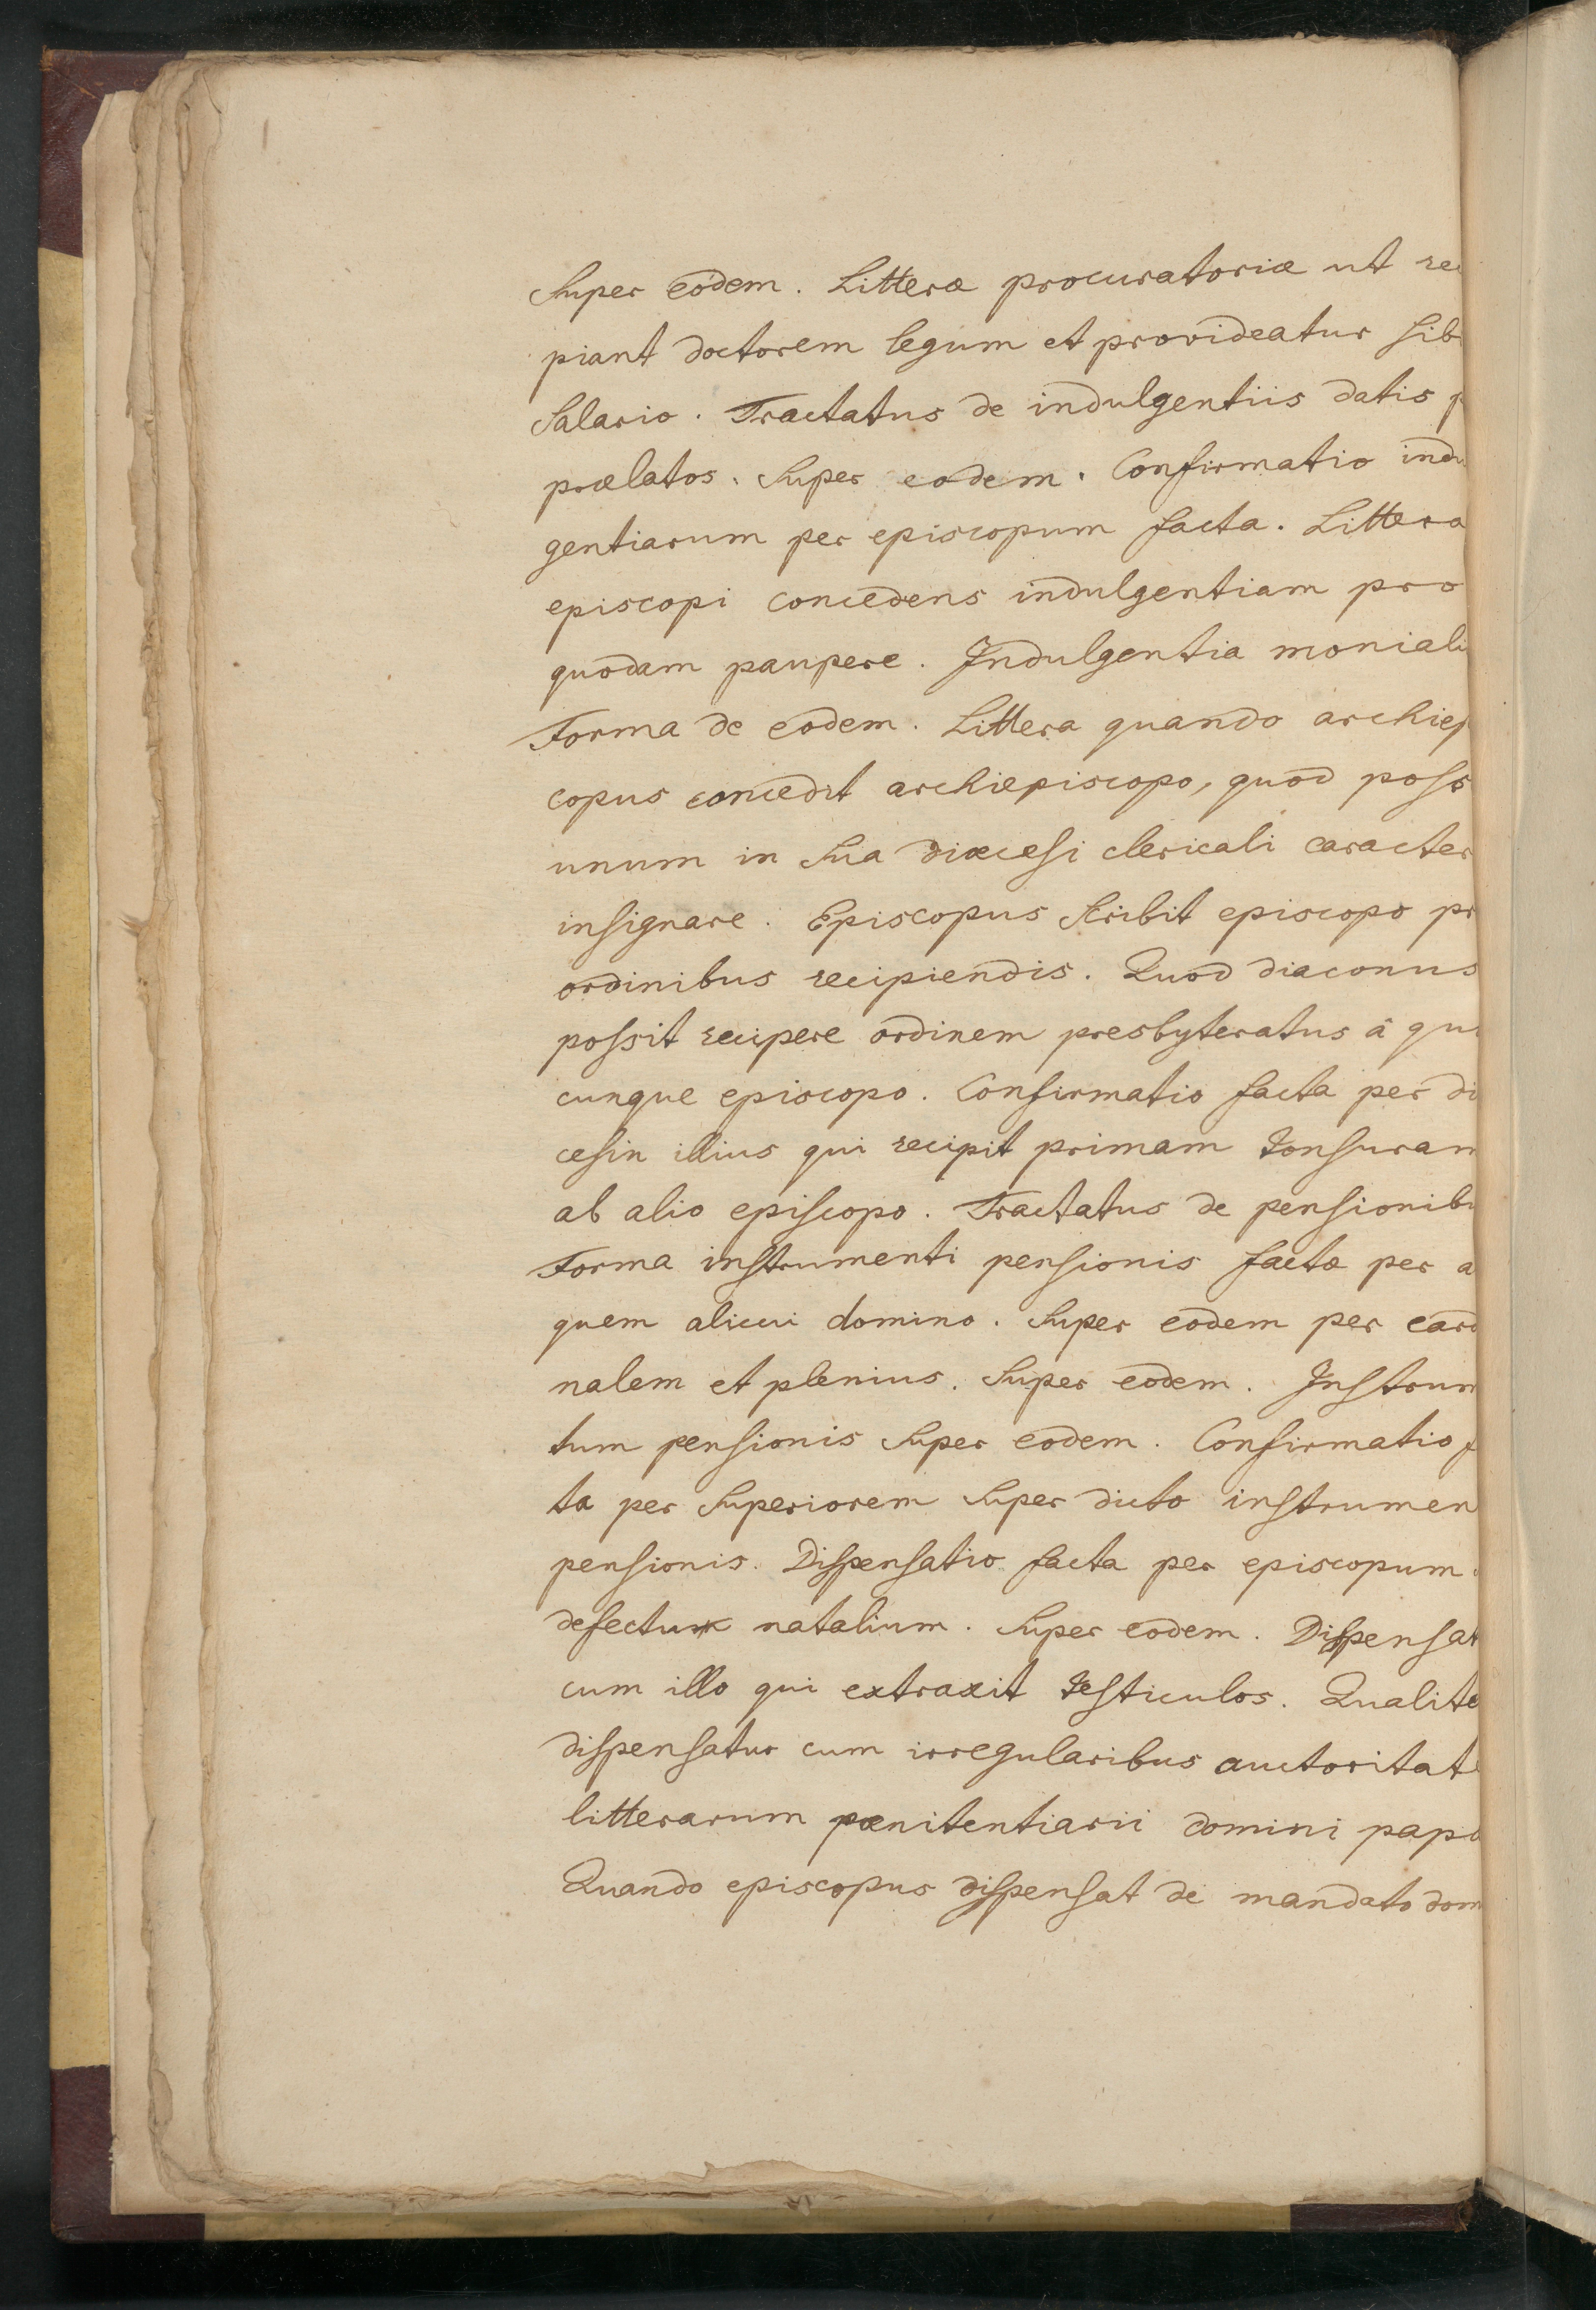 Super eodem. Litteræ procuratoriæ ut rec
piant doctorem legum et provideatur sibi
salario. Tractatus de indulgentiis datis p
prælatos. Super eodem. Confirmatio indu
gentiarum per episcopum facta. Littera
episcopi concedens indulgentiam pro
quodam paupere. Indulgentia moniali
Forma de eodem. Littera quando archiep
copus concedit archiepiscopo, quod poss
unum in sua diœcesi clericali caracter
insignare. Episcopus scribit episcopo pr
ordinibus recipiendis. Quod diaconus
possit recipere ordinem presbyteratus â qu
cunque episcopo. Confirmatio facta per di
cesin illius qui recipit primam tonsuram
ab alio episcopo. Tractatus de pensionibu
Forma instrumenti pensionis factæ per a
quem alicui domino. Super eodem per card
nalem et plenius. Super eodem. Instrum
tum pensionis super eodem. Confirmatio f
ta per superiorem super dicto instrumen
pensionis. Dispensatio facta per episcopum
defectum natalium. Super eodem. Dispensat
cum illo qui extraxit testiculos. Qualite
dispensatur cum irregularibus auctoritate
litterarum pœnitentiarii domini papæ
Quando episcopus dispensat de mandato dom